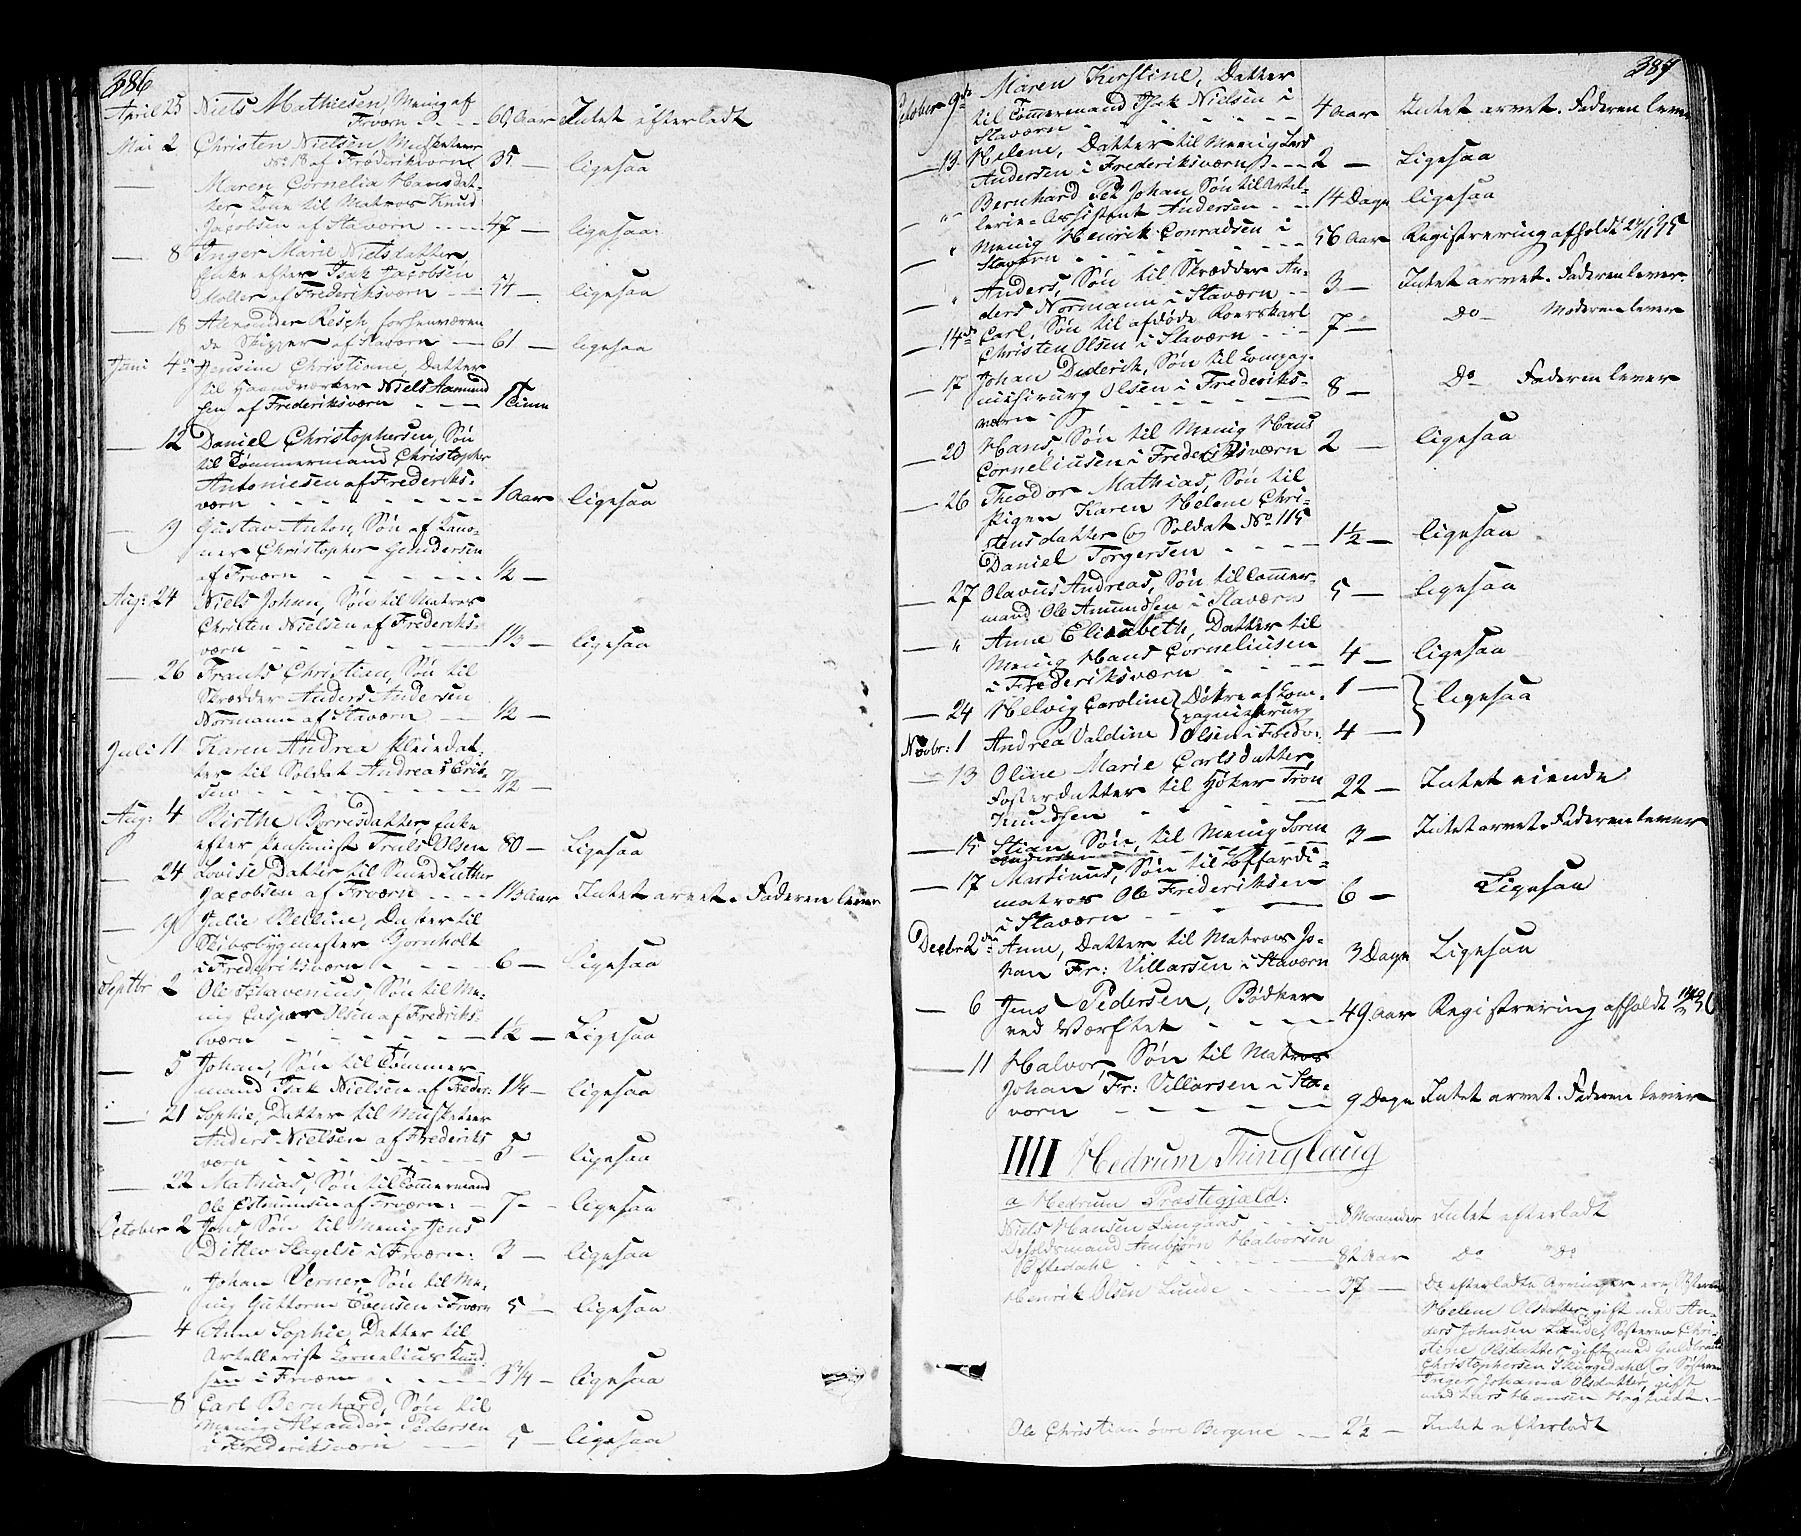 386
April 25 Niels Mathiesen, Menig af
Frværn 69 Aar Intet efterladt
Mai 2 Christen Nielsen Musketeer
No 18 af Fredriksværn 35 — ligesaa
— Maren Cornelia Hansdat-
ter Kone til Matros Knud
Jacobsen af Stavern 47 — ligesaa
— 8 Inger Marie Nielsdatter,
Enke efter Isak Jacobsen
Møller af Frederiksværn 74 — ligesaa
— 18 Alexander Resch forhenværen
de Skipper af Staværn 61 — ligesaa
Juni 4de Hensine Christiane, Datter
til Haandværker Niels Aamund
sen af Frederiksværn 1 Time
— 12 Daniel Christophersen, Søn
til Tømmermand Christopher
Antoniesen af Frederiks-
værn 1 Aar ligesaa
— 9 Gustav Anton, Søn af Kano-
ner Christopher Gundersen
af Frværn 1/2 —
Aug: 24 Niels Johan, Søn til Matros
Christen Nielsen af Frederiks-
værn 1 1/3 — ligesaa
— 26 Frants Christian, Søn til
Skrædder Anders Andersen
Normann af Staværn 1/2 —
Juli 11 Karen Andrea Pleiedat-
ter til Soldat Andreas Eris-
sen 7/2 —
Aug: 4 Birthe Børresdatter, Enke
efter Pensionist Truls Olsen 80 — Ligesaa
— 24 Lovise Datter til Smed Luther
Jacobsen af Frværn 1 1/3 Aar Intet arvet. Faderen lever
Julie Belline, Datter til
Skibsbygmester Bjornholt
i Frederiksværn 6 — Ligesaa
Septbr 2 Ole Stavenius, Søn til Me-
nig Casper Olsen af Fredriks-
værn 1 1/2 — Ligesaa
— 5 Johan, Søn til Tømmer-
mand Isak Nielsen af Feder: 1 1/4 — ligesaa
— 21 Sophie, Datter til Musketeer
Anders Nielsen af Frederiks
værn 5 — ligesaa
— 22 Mathias, Søn til Tømmermand
Ole Estmundsen af Frværn: 7 — ligesaa
October 2 Jens, Søn til Menig Jens
Ditlev Slagelse i Frværn: 3 — ligesaa
" Johan Verner, Søn til Me-
nig Guttorm Evensen i Frværn 5 — ligesaa
— 4 Anne Sophie, Datter til
Artellerist Cornelius Knud-
sen i Frværn 3 1/4 — ligesaa
— 8 Carl Bernhard, Søn til
Menig Alexander Pedersen
i Frederiksværn 5 — ligesaa
387
October 9de Maren Kirstine, Datter
til Tømmermand Isak Nielsen i
Staværn 4 Aar Intet arvet. Faderen lever
— 13 Helene, Datter til Menig Lars
Andersen i Frederiksværn 2 — Ligesaa
— " Bernhard Pet Johan, Søn til Artel-
lerie-Assistent Andersen 14 Dage ligesaa
— " Menig Henrik Conradsen i
Staværn 56 Aar Registrering afholdt
— " Anders, Søn til Skrædder An-
ders Normann i Staværn 3 — Intet arvet. Faderen lever.
— 14de Carl, Søn til afdøde Roerskarl
Christen Olsen i Staværn 7 — Do Moderen lever
— 17 Johan Diderik, Søn til Compag-
nichirurg Olsen i Frederiks-
værn 8 — Do Faderen lever
— 20 Hans, Søn til Menig Hans
Corneliusen i Frederiksværn 2 — ligesaa
— 26 Theodor Mathias, Søn til
Pigen Karen Helene Chri-
stensdatter og Soldat No 115
Daniel Torgersen 1 1/2 — ligesaa
— 27 Olavus Andreas, Søn til Tømmer-
mand Ole Amundsen i Staværn 5 — ligesaa
— " Anne Elisabeth, Datter til
Menig Hans Corneliusen
i Frederiksværn 4 — ligesaa
— 24 Helvig Caroline Døttre af Com- 1 —
pagnichirurg ligesaa
Novbr: 1 Andrea Valdine Olsen i Fredv: 4 —
— 13 Oline Marie Carlsdatter,
Fosterdatter til Høker Tron
Knudsen 22 — Intet eiende
— 15 Stian Søn, til Menig Søren
Andersen 3 — Intet arvet. Faderen lever
— 17 Martinus, Søn til Coffardi-
matros Ole Frederiksen
i Staværn 6 — Ligesaa
Decbr 2den Anne, Datter til Matros Jo-
han Fr: Villarsen i Staværn 3 Dage Ligesaa
— 6 Jens Pedersen, Bødker
ved Værftet 49 Aar Registrering afholdt
— 11 Halvor, Søn til Matros
Johan Fr: Villarsen i Sta-
vern 9 Dage Intet arvet. Faderen lever
IIII Hedrum Thinglaug
a Hedrum Præstegjæld:
Niels Hansen Lingaas 8 Maaneder Intet efterladt
Opholdsmand Anbjørn Halvorsen
Oftedahl 82 Aar Do Do
Henrik Olsen Lunde 37 — De efterladte Arvinger ere, Søsteren
Helene Olsdatter, gift med An-
ders Johnsen Lunde, Søsteren Chri-
stine Olsdatter, gift med Guldbrand
Christophersen Skinsdahl og Søsteren
Inger Johanna Olsdatter, gift
med Lars Hansen
Ole Christian øvre Bergene 2 1/2 — Intet efterladt